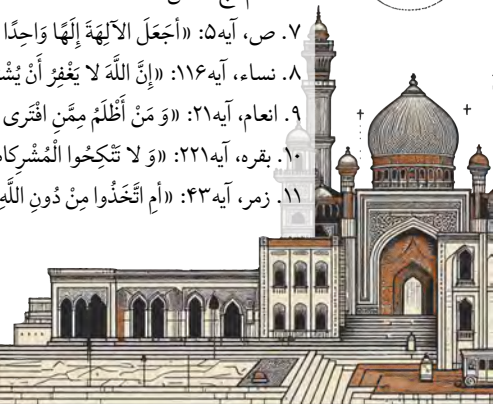 ۷. ص، آیه۵: «أجَعَلَ الآلِهَةَ إِلَهًا وَاحِدًا
۸. نساء، آیه۱۱۶: «إِنَّ اللَّهَ لا يَغْفِرُ أَنْ
۹. انعام، آیه۲۱: «وَ مَنْ أَظْلَمُ مِمَّنِ افْتَرى
۱۰. بقره، آیه۲۲۱: «وَ لا تَنْكِحُوا
۱۱. زمر، آیه۴۳: «أمِ اتَّخَذُوا مِنْ دُونِ اللَّهِ